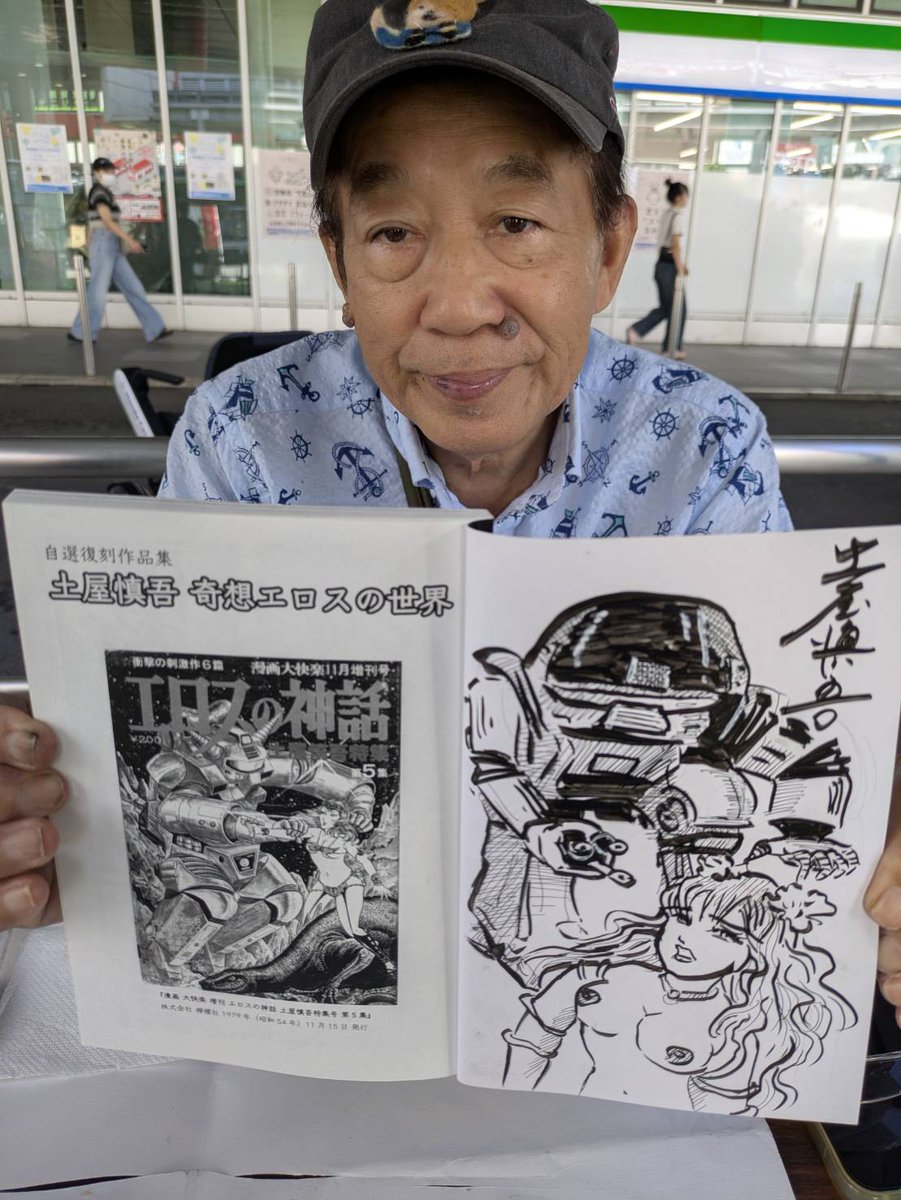 自選復刻作品集
土屋慎吾 奇想エロスの世界
☆衝撃の刺激作6篇
漫画大快楽11月増刊号
エロスの神話
¥200
土屋慎吾特集
第5集
「漫画 大快楽 増刊 エロスの神話 土屋慎吾特集号 第5集」
株式会社 檸檬社 1979年（昭和54年）11月15日 発行
土屋慎吾